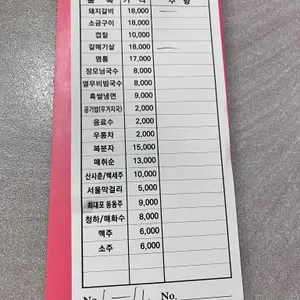 품 목 가 격 수 량
돼지갈비 18,000
소금구이 18,000
껍질 10,000
갈매기살 18,000
염통 17,000
장모님국수 8,000
열무비빔국수 8,000
흑쌀냉면 9,000
공기밥(우거지국) 2,000
음료수 2,000
우롱차 2,000
복분자 15,000
매취순 13,000
산사춘/백세주 10,000
서울막걸리 5,000
최대포 동동주 9,000
청하/매화수 8,000
맥주 6,000
소주 6,000
No. No.